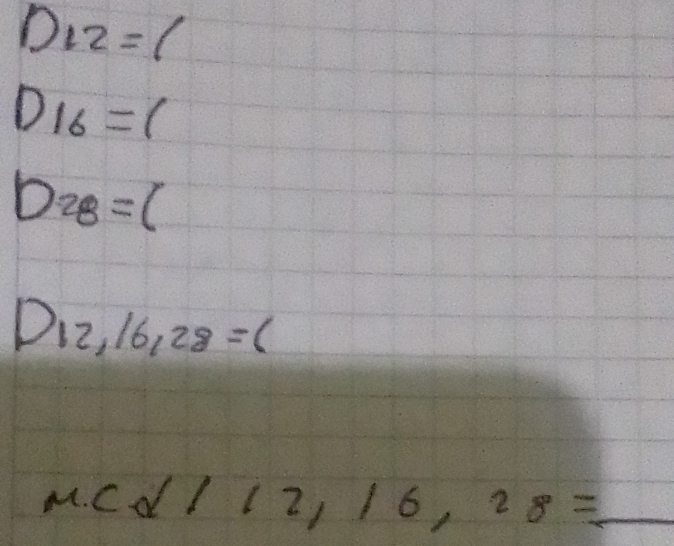 D12=(
D16=(
D28=(
D12,16,28=(
M.Cd/12,16,28=__